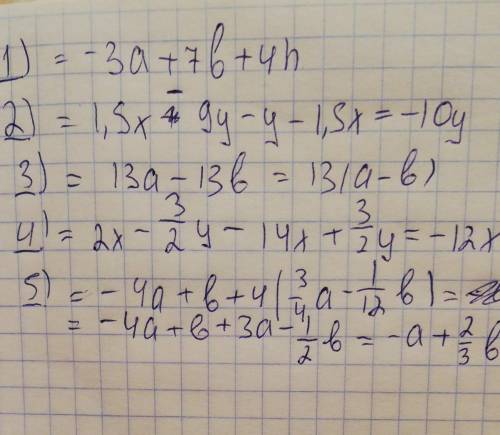 1) = -3a + 7b + 4h
2) = 1,5x - 9y - y - 1,5x = -10y
3) = 13a - 13b = 13(a - b)
4) = 2x - 3/2 y - 14x + 3/2 y = -12x
5) = -4a + b + 4(3/4 a - 1/12 b) =
= -4a + b + 3a - 1/2 b = -a + 2/3 b